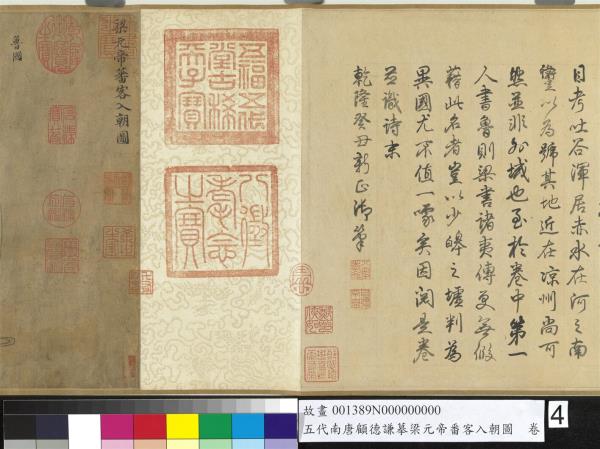 目考吐谷渾居赤水在河之南
以為號其地近在涼州尚可
然並非外域也至於卷中第一
人書魯則梁書諸夷傳更無假
藉此名者豈以少皞之墟判為
異國尤不值一噱矣因閱是卷
並識詩末
乾隆癸丑新正御筆
五福五代
堂古稀
天子寶
八徵
耄念
之寶
梁元帝蕃客入朝圖
魯國
故畫 001389N000000000
五代南唐顧德謙摹梁元帝番客入朝圖 卷
4